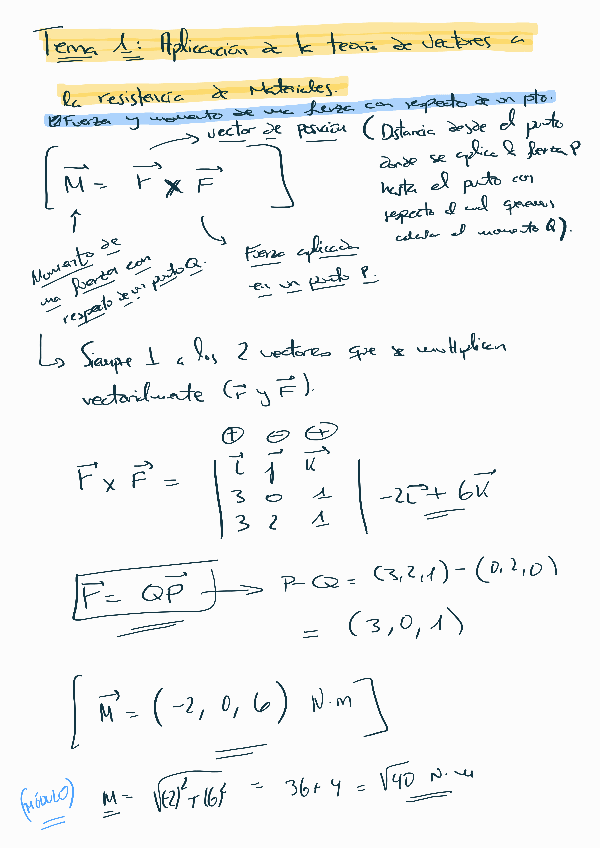 Tema 1: Aplicación de la teoría de vectores a
la resistencia de Materiales.
Fuerza y momento de una fuerza con respecto de un pto.
vector de posición (Distancia desde el punto
donde se aplica la fuerza P
hasta el punto con
respecto el cual queremos
calcular el momento Q).
[M⃗ = r⃗ x F⃗]
Momento de
una fuerza con
respecto de un punto Q.
Fuerza aplicada
en un punto P.
↳ Siempre ⊥ a los 2 vectores que se multiplican
vectorialmente (r⃗ y F⃗).
⊕ ⊖ ⊕
r⃗ x F⃗ = | i⃗ j⃗ k⃗ |
| 3 0 1 | -2i⃗ + 6k⃗
| 3 2 1 |
r⃗ = QP⃗ → P-Q = (3,2,1) - (0,2,0)
= (3,0,1)
[M⃗ = (-2, 0, 6) N·m]
(MÓDULO) M = √(-2)² + (6)² = 36 + 4 = √40 N·m